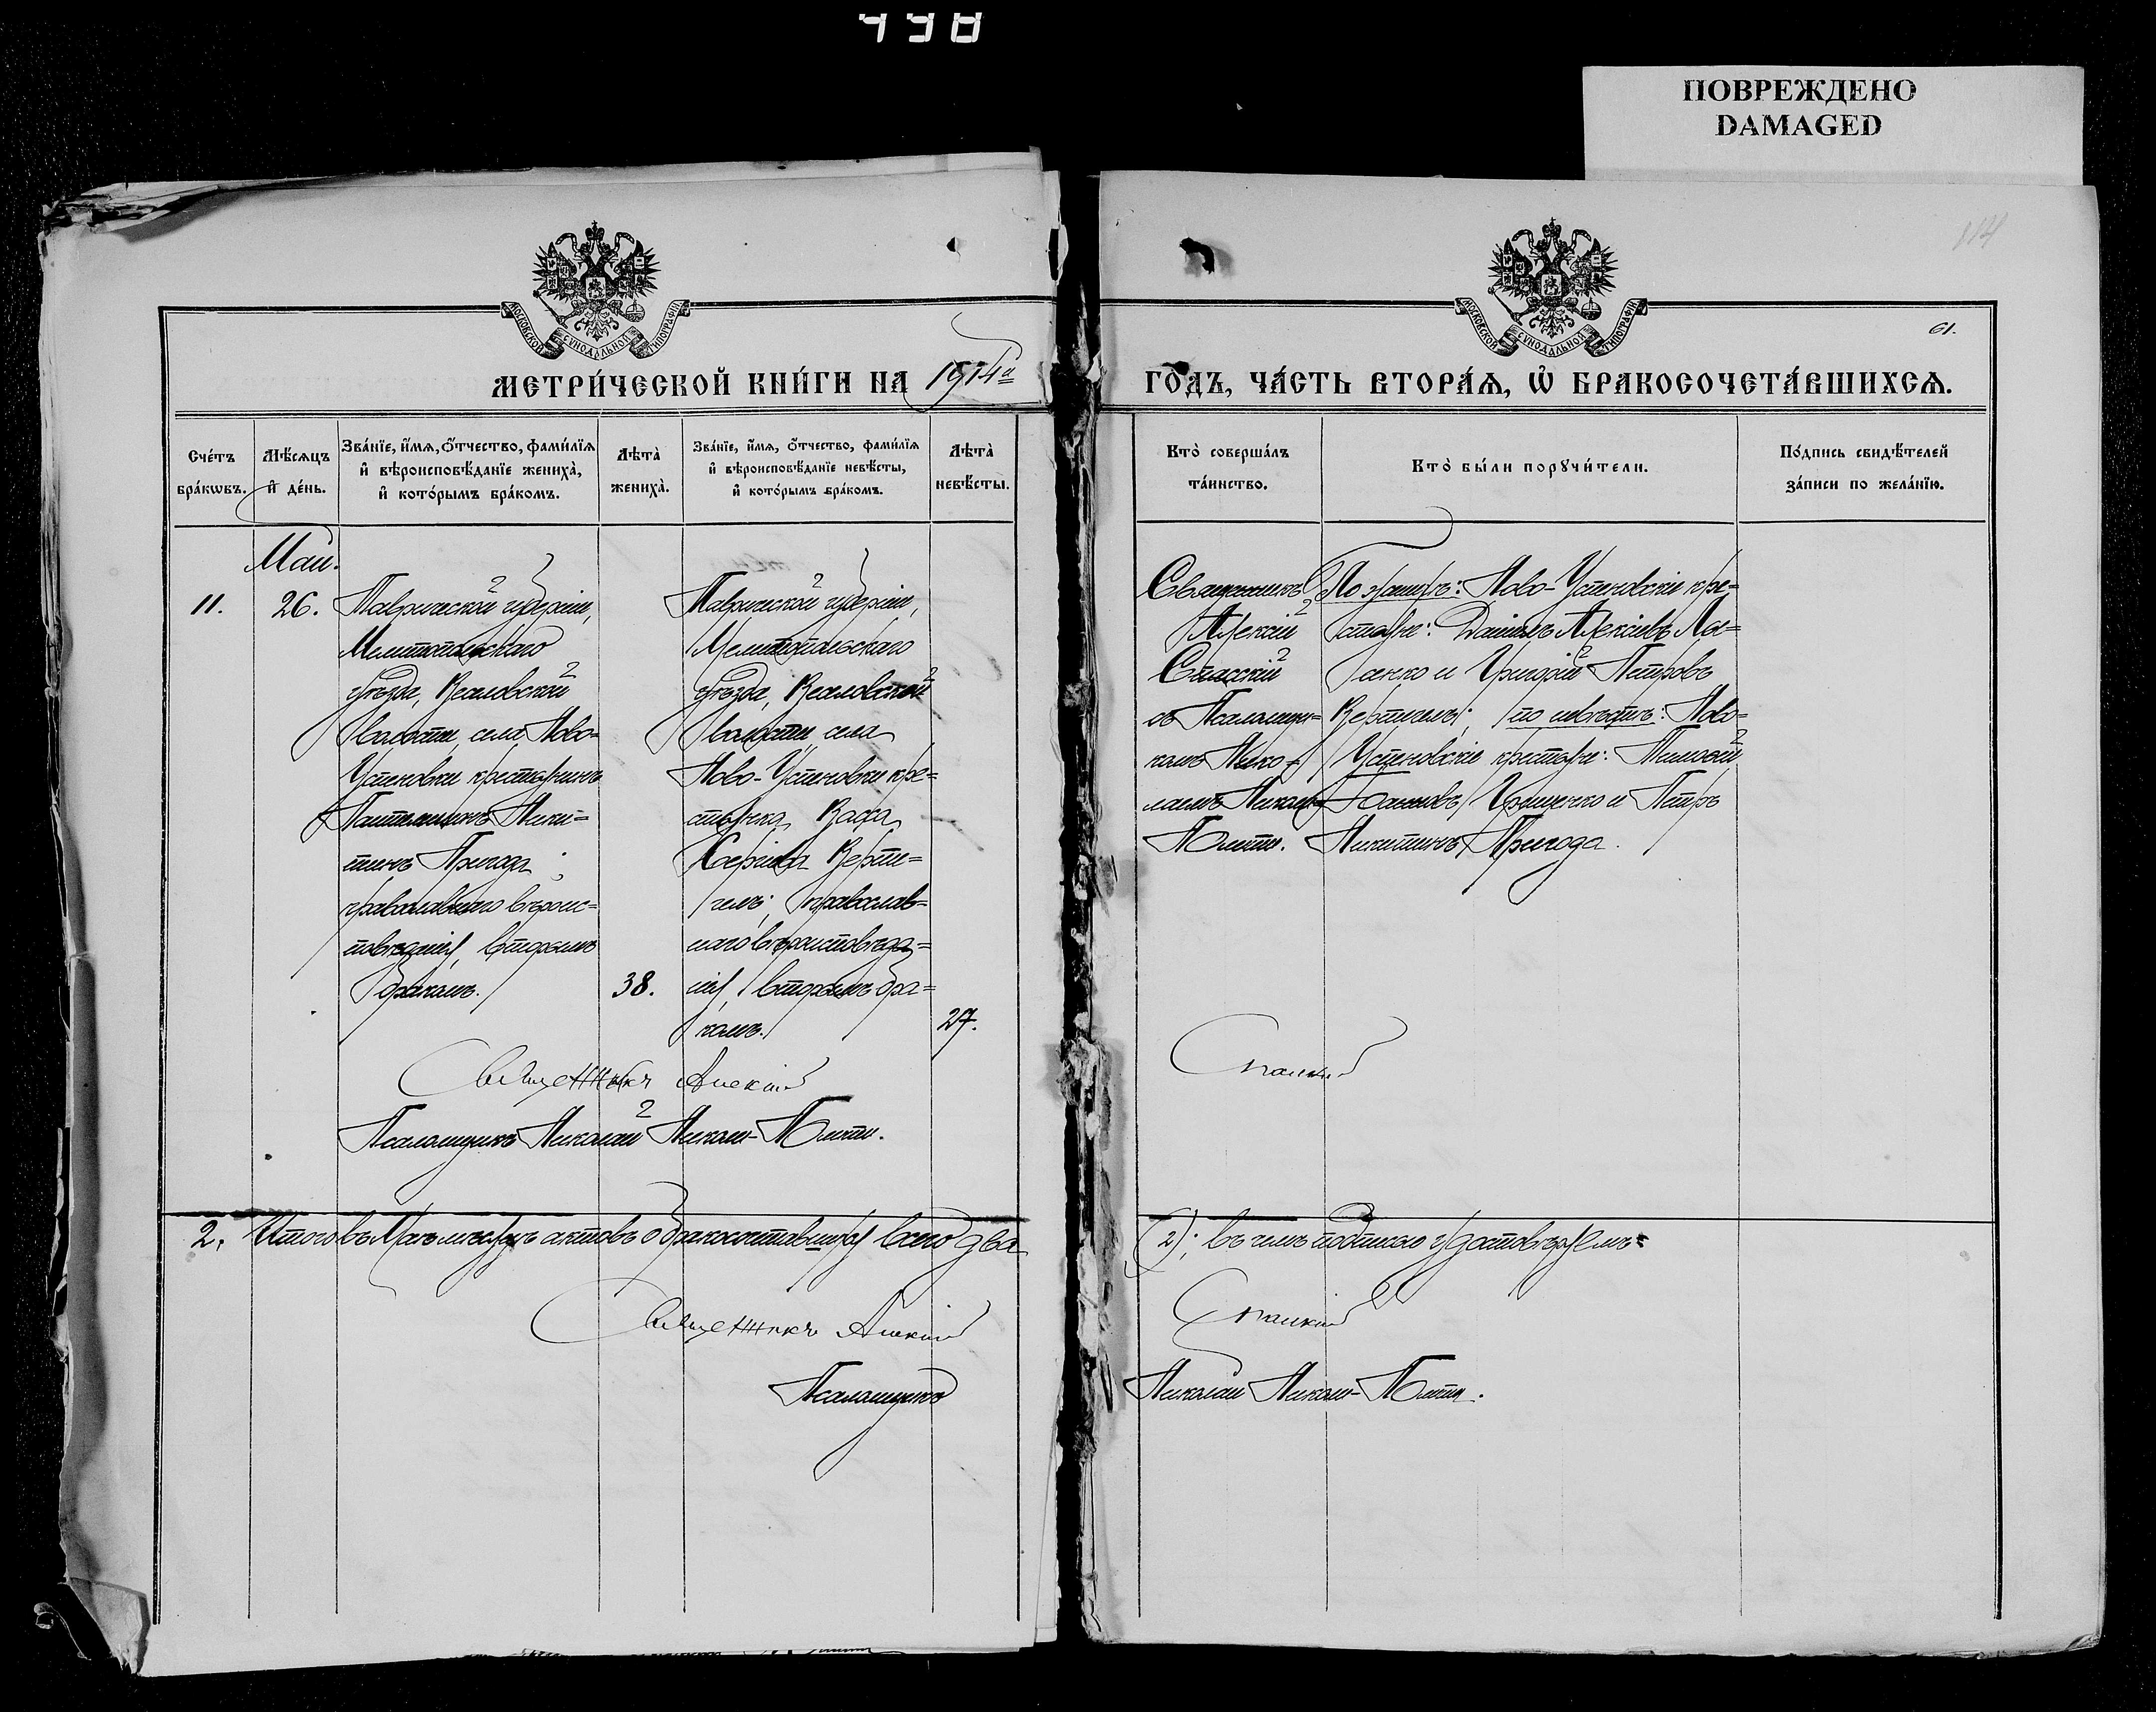 498
ПОВРЕЖДЕНО
DAMAGED
114
МОСКОВСКОЙ СѴНОДАЛЬНОЙ ТИПОГРАФІИ
МОСКОВСКОЙ СѴНОДАЛЬНОЙ ТИПОГРАФІИ
61.
МЕТРИ́ЧЕСКОЙ КНИ́ГИ НА 1914й
ГО́ДЪ, ЧА́СТЬ ВТОРА́Ѧ, Ѡ҆ БРАКОСОЧЕТА́ВШИХСѦ.
Сче́тъ бра́кѡвъ.
Мѣ́сѧцъ и҆ де́нь.
Зва́нїе, и҆́мѧ, ѻ҆́тчество, фами́лїѧ
и҆ вѣроисповѣ́данїе жениха̀,
и҆ кото́рымъ бра́комъ.
Лѣта̀ жениха̀.
Зва́нїе, и҆́мѧ, ѻ҆́тчество, фами́лїѧ
и҆ вѣроисповѣ́данїе невѣ́сты,
и҆ кото́рымъ бра́комъ.
Лѣта̀ невѣ́сты.
Кто̀ соверша́лъ
та́инство.
Кто̀ бы́ли порꙋчи́тели.
По́дпись свидѣ́телей
за́писи по жела́нїю.
Май.
11.
26.
Таврической губерніи,
Мелитопольскаго
уѣзда, Веселовской
волости, села Ново-
Успеновки крестьянинъ
Пантелеимонъ Ники-
тинъ Пригода;
православнаго вѣроис-
повѣданія, вторымъ
бракомъ.
38.
Таврической губерніи,
Мелитопольскаго
уѣзда, Веселовской
волости, села
Ново-Успеновки кре-
стьянка
Сергіева Верти-
гелъ; православ-
наго вѣроисповѣда-
нія, вторымъ бра-
комъ.
27.
Священникъ
Алексій
Спасскій
съ Псаломщи-
комъ Нико-
лаемъ
По женихѣ: Ново-Успеновскіе кре-
стьяне: Даніилъ Алексіевъ Ля-
шенко и Григорій Петровъ
по невѣстѣ: Ново-
Успеновскіе крестьяне: Тимофей
Грищенко и Петръ
Никитинъ Пригода.
Священникъ Алексій Спасскій
Псаломщикъ Николай
2. Итого въ Маѣ мѣсяцѣ актовъ о бракосочетавшихся всего два (2); въ чемъ подписью удостовѣряемъ:
Священникъ Алексій Спасскій
Псаломщикъ Николай